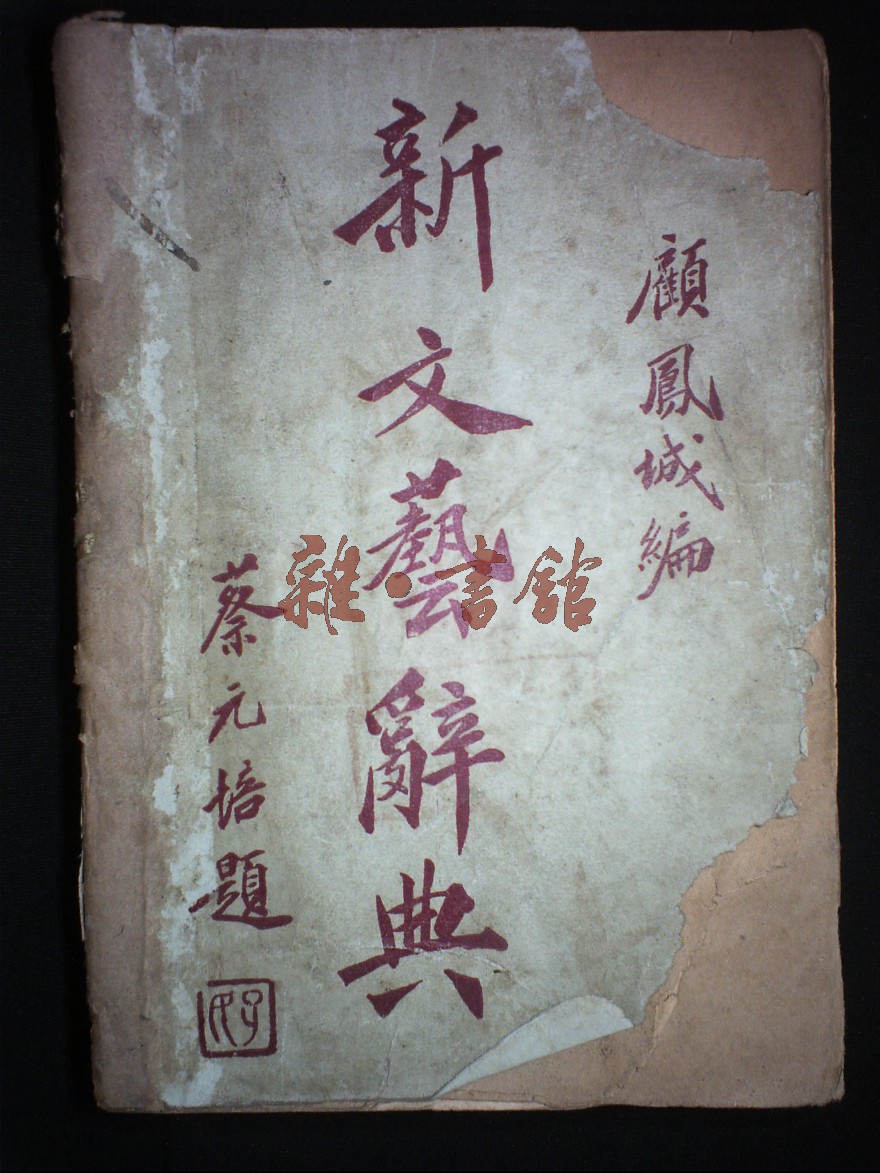 顧鳳城編
新文藝辭典
蔡元培題
孑民
雜·書館